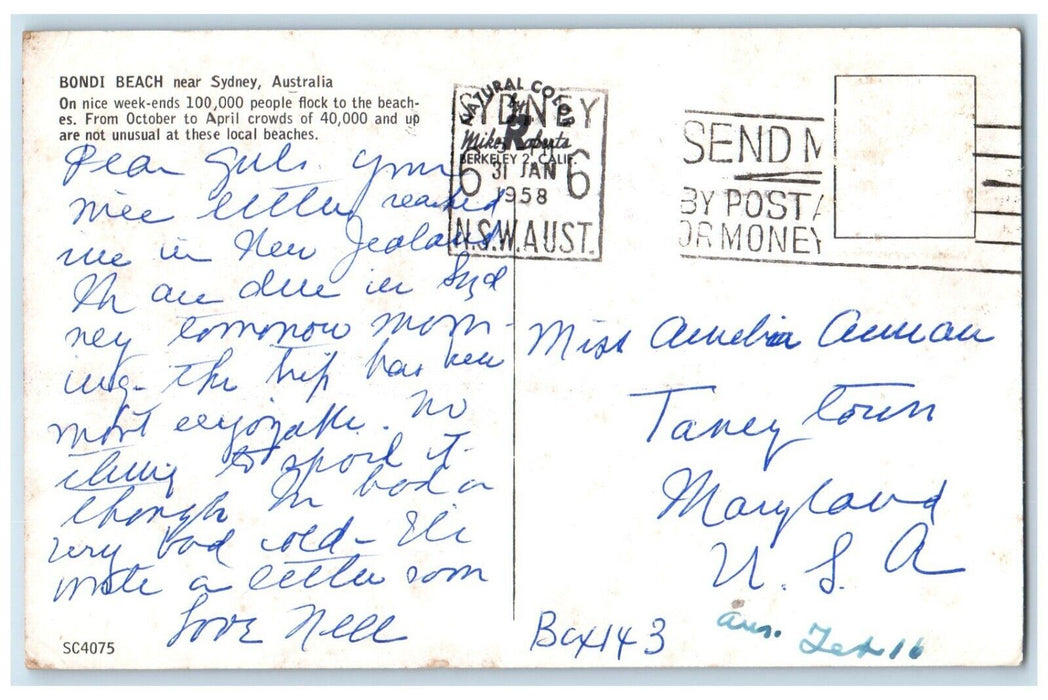 BONDI BEACH near Sydney, Australia
On nice week-ends 100,000 people flock to the beach-
es. From October to April crowds of 40,000 and up
are not unusual at these local beaches.
Dear Girls. Your
nice letter reached
me in New Zealand
We are due in Syd
ney tomorrow morn-
ing - the trip has been
most enjoyable. No
thing to spoil it -
though I had a
very bad cold - I'll
write a letter soon
Love Nell
SC4075
NATURAL COLOR
by
Mike Roberts
BERKELEY 2, CALIF.
SYDNEY
6 31 JAN 6
1958
N.S.W. AUST.
SEND M
BY POSTA
OR MONEY
Miss Amelia Annan
Taneytown
Maryland
U. S. A
Box 143
ans. Feb 16